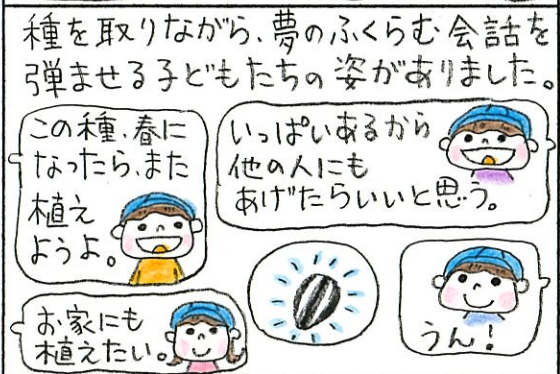 種を取りながら、夢のふくらむ会話を
弾ませる子どもたちの姿がありました。
この種、春に
なったら、また
植え
ようよ。
いっぱいあるから
他の人にも
あげたらいいと思う。
お家にも
植えたい。
うん！